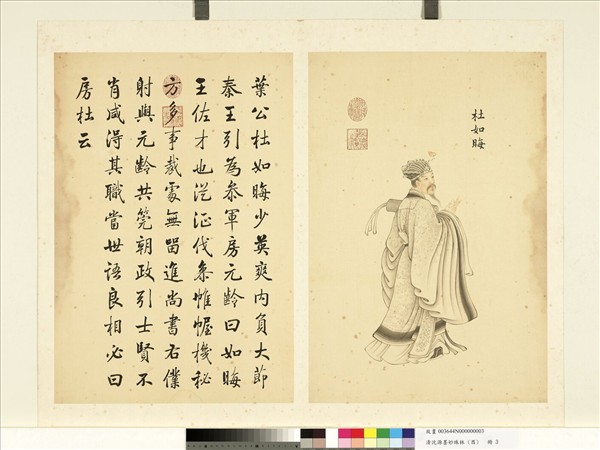 杜如晦
萊公杜如晦少英爽內負大節
秦王引為叅軍房元齡曰如晦
王佐才也從征伐叅帷幄機秘
方多事裁處無留進尚書右僕
射與元齡共筦朝政引士賢不
肖咸得其職當世語良相必曰
房杜云
故畫 003644N000000003
清沈源墨妙珠林（酉） 冊 3